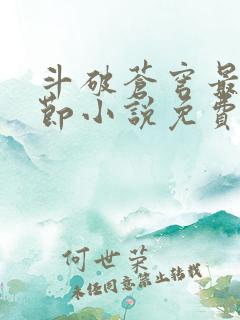 斗破蒼穹最
節小説免費
何世荣
未经同意禁止转载